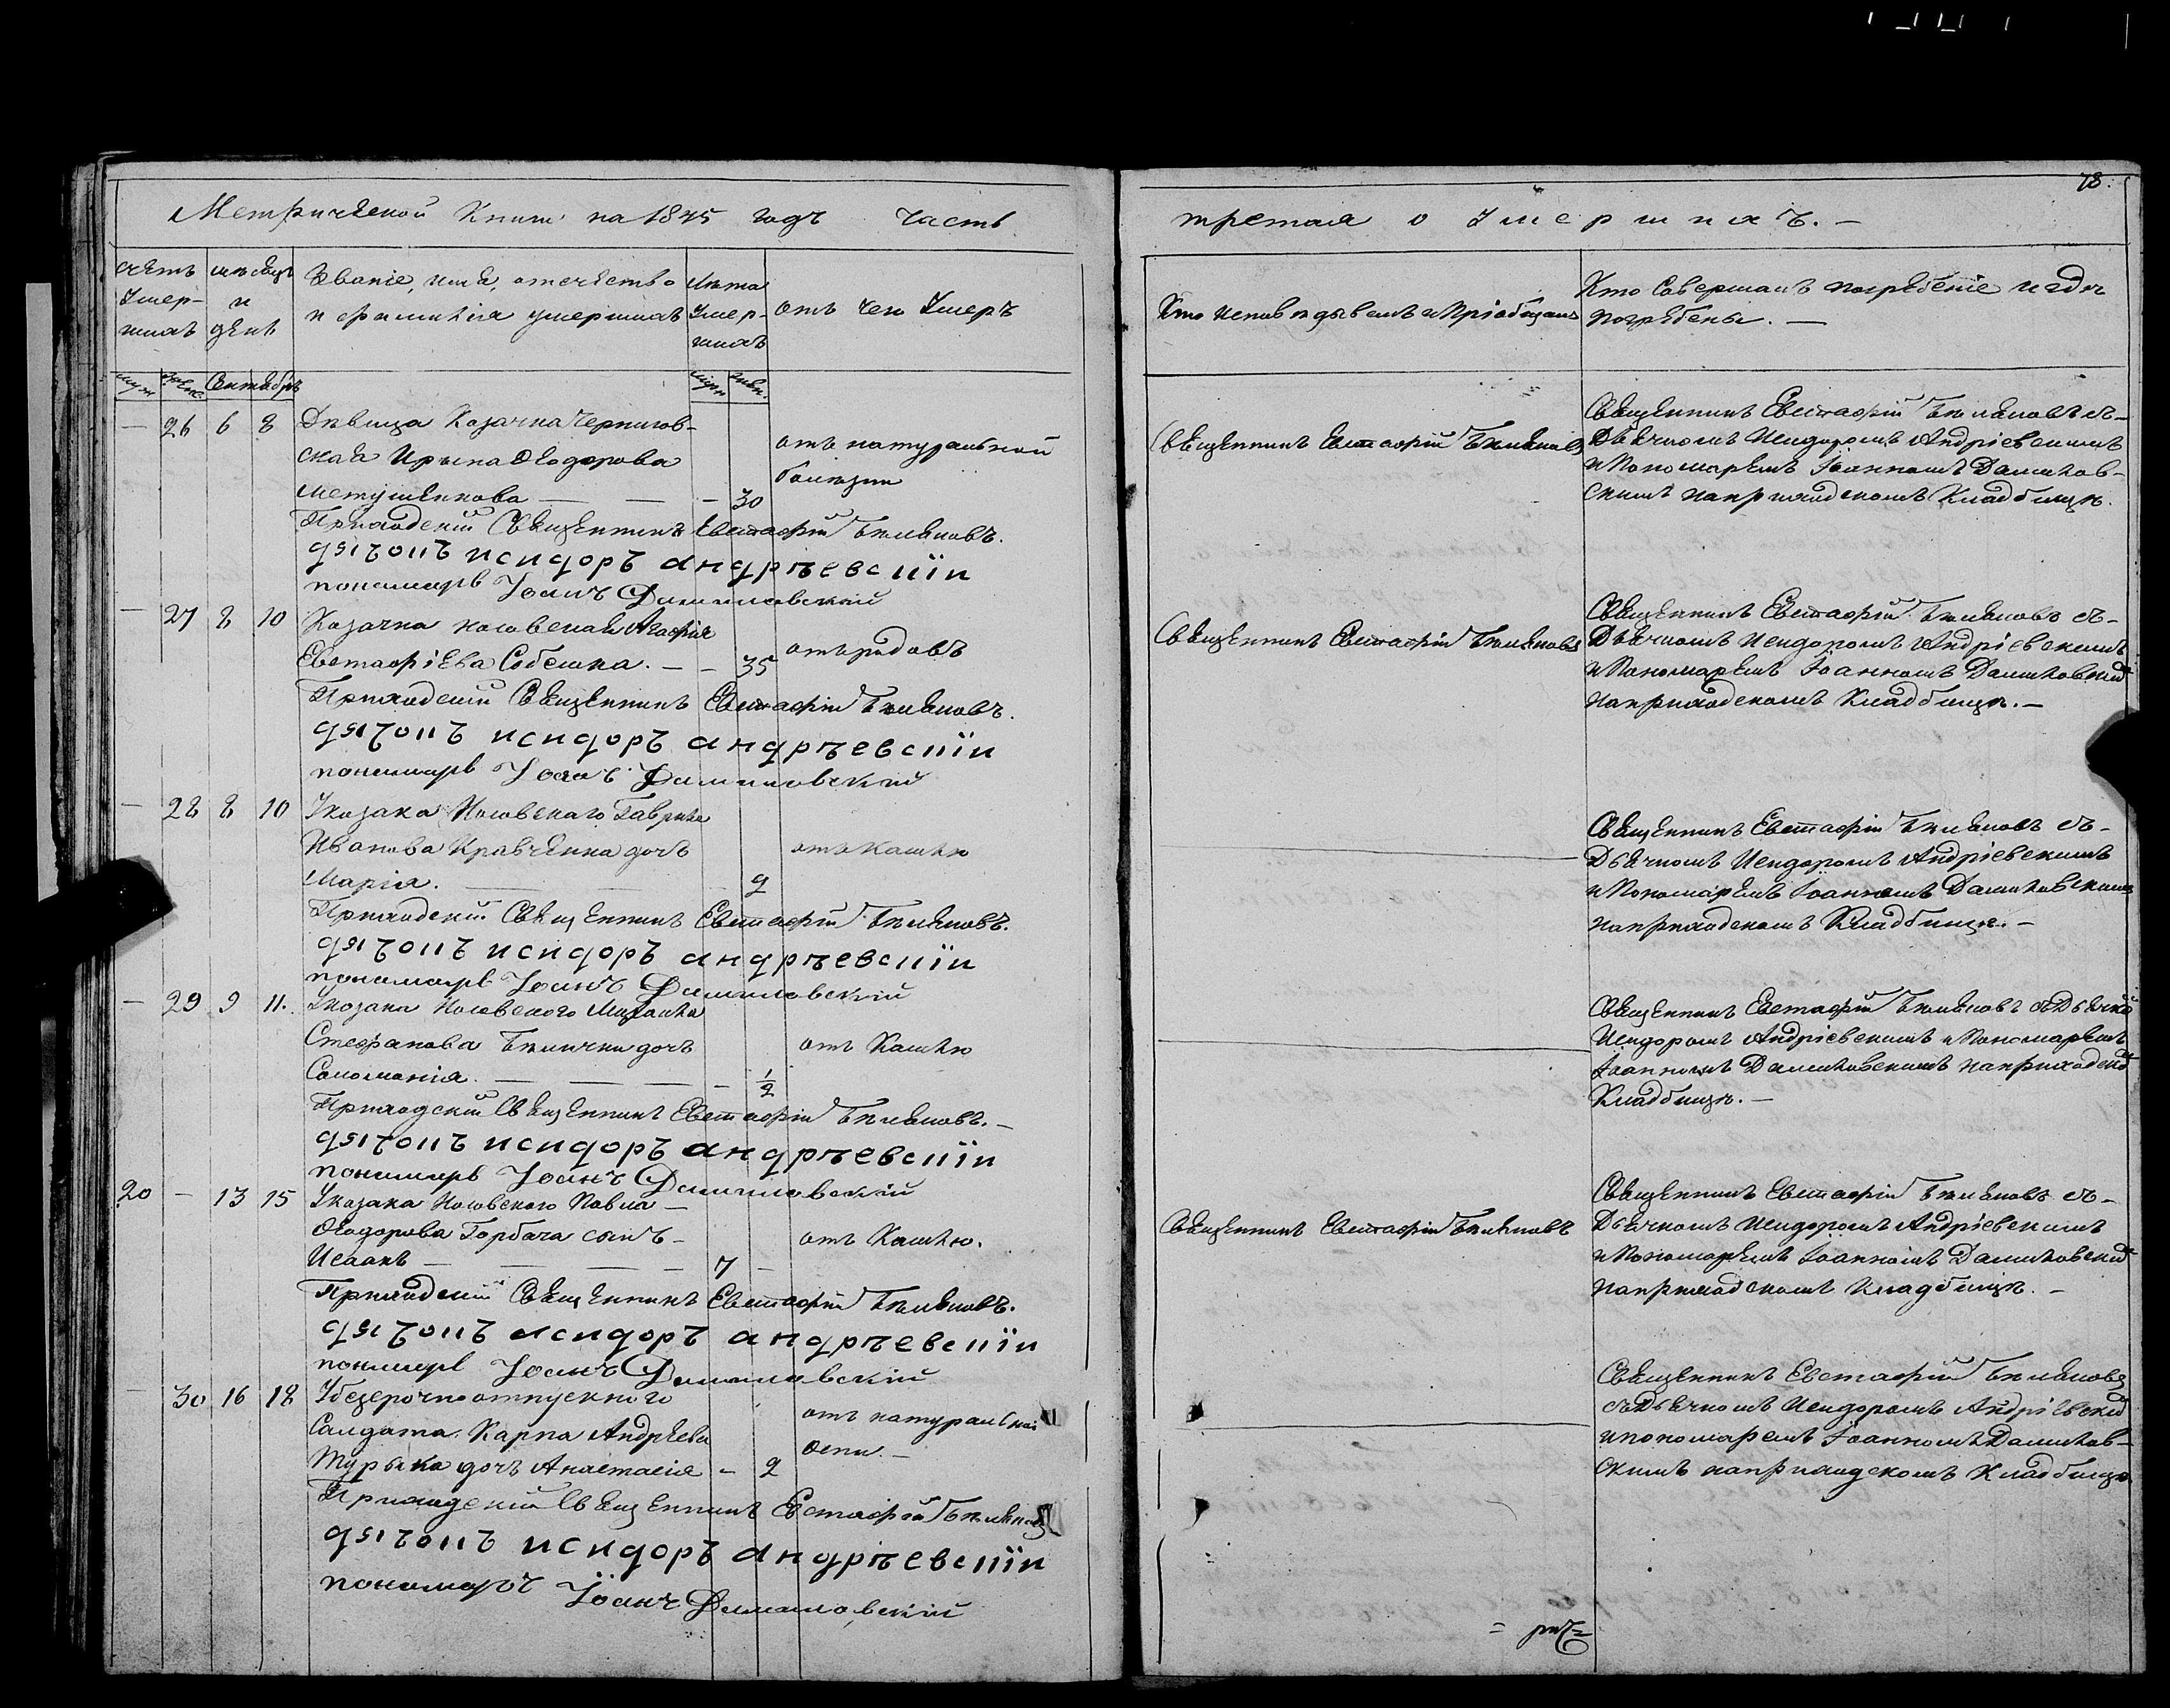 78.
Метрической Книги на 1845 годъ Часть
третая о Умершихъ. —
счетъ Умер-шихъ
мѣсяцъ и день
Званіе, имя, отечество и фамилія умершихъ
Лѣта Умер-шихъ
отъ чего Умеръ
Кто исповѣдывалъ и Пріобщалъ
Кто Совершалъ погребеніе и гдѣ погребены. —
муж женс Сентябрь муж женс.
— 26 6 8 Дѣвица Козачка Чернигов-
ская Ирына Ѳеодорова
Метушенкова — — — 30
отъ натуральной
болѣзни
Священникъ Евстафій Бѣляновъ
Священникъ Евстафій Бѣляновъ съ-
Дьячкомъ Исидоромъ Андріевскимъ
и Пономаремъ Іоанномъ Даликов-
скимъ наприходскомъ Кладбищѣ.
Приходскій Священникъ Евстафій Бѣляновъ.
дячокъ исидоръ андрѣевскій
пономарь Іоанъ Даликовскій
— 27 8 10 Козачка носовская Агафія
Евстафіева Собешка. — — 35
отъ родовъ
Священникъ Евстафій Бѣляновъ
Священникъ Евстафій Бѣляновъ съ-
Дьячкомъ Исидоромъ Андріевскимъ
и Пономаремъ Іоанномъ Даликовским
наприходскомъ Кладбищѣ. —
Приходскій Священникъ Евстафій Бѣляновъ.
дячокъ исидоръ андрѣевскій
пономарь Іоанъ Даликовскій
— 28 8 10 Укозака Носовскаго Гаврила
Иванова Кравченка дочъ
Марія. — — — 9
отъ Кашлю
Священникъ Евстафій Бѣляновъ съ-
Дьячкомъ Исидоромъ Андріевскимъ
и Пономаремъ Іоанномъ Даликовскимъ
наприходскомъ Кладбищѣ. —
Приходскій Священникъ Евстафій Бѣляновъ.
дячокъ исидоръ андрѣевскій
пономарь Іоанъ Даликовскій
— 29 9 11. Укозака Носовского Михайла
Стефанова дочъ
Соломонія. — — — — 1/2
отъ Кашлю
Священникъ Евстафій Бѣляновъ съДьячко
Исидоромъ Андріевскимъ и Пономаремъ
Іоанномъ Даликовскимъ наприходско
Кладбищѣ. —
Приходскій Священникъ Евстафій Бѣляновъ. —
дячокъ исидоръ андрѣевскій
пономарь Іоанъ Даликовскій
20 — 13 15 Укозака Носовского Павла —
Ѳеодорова Горбача сынъ —
Исаакъ — — — — 7 —
отъ Кашлю.
Священникъ Евстафій Бѣляновъ
Священникъ Евстафій Бѣляновъ съ-
Дьячкомъ Исидоромъ Андріевскимъ
и Пономаремъ Іоанномъ Даликовским
наприходскомъ Кладбищѣ. —
Приходскій Священникъ Евстафій Бѣляновъ.
дячокъ исидоръ андрѣевскій
пономарь Іоанъ Даликовскій
— 30 16 18 Убезсрочноотпускного
Салдата Карпа Андреева
Турыка дочъ Анастасія — 2
отъ натуральной
оспи. —
Священникъ Евстафій Бѣляновъ
съДьячкомъ Исидоромъ Андріевским
ипономаремъ Іоанномъ Даликов-
скимъ наприходскомъ Кладбищѣ
Приходскій Священникъ Евстафій Бѣляновъ
дячокъ исидоръ андрѣевскій
пономаръ Іоанъ Даликовскій